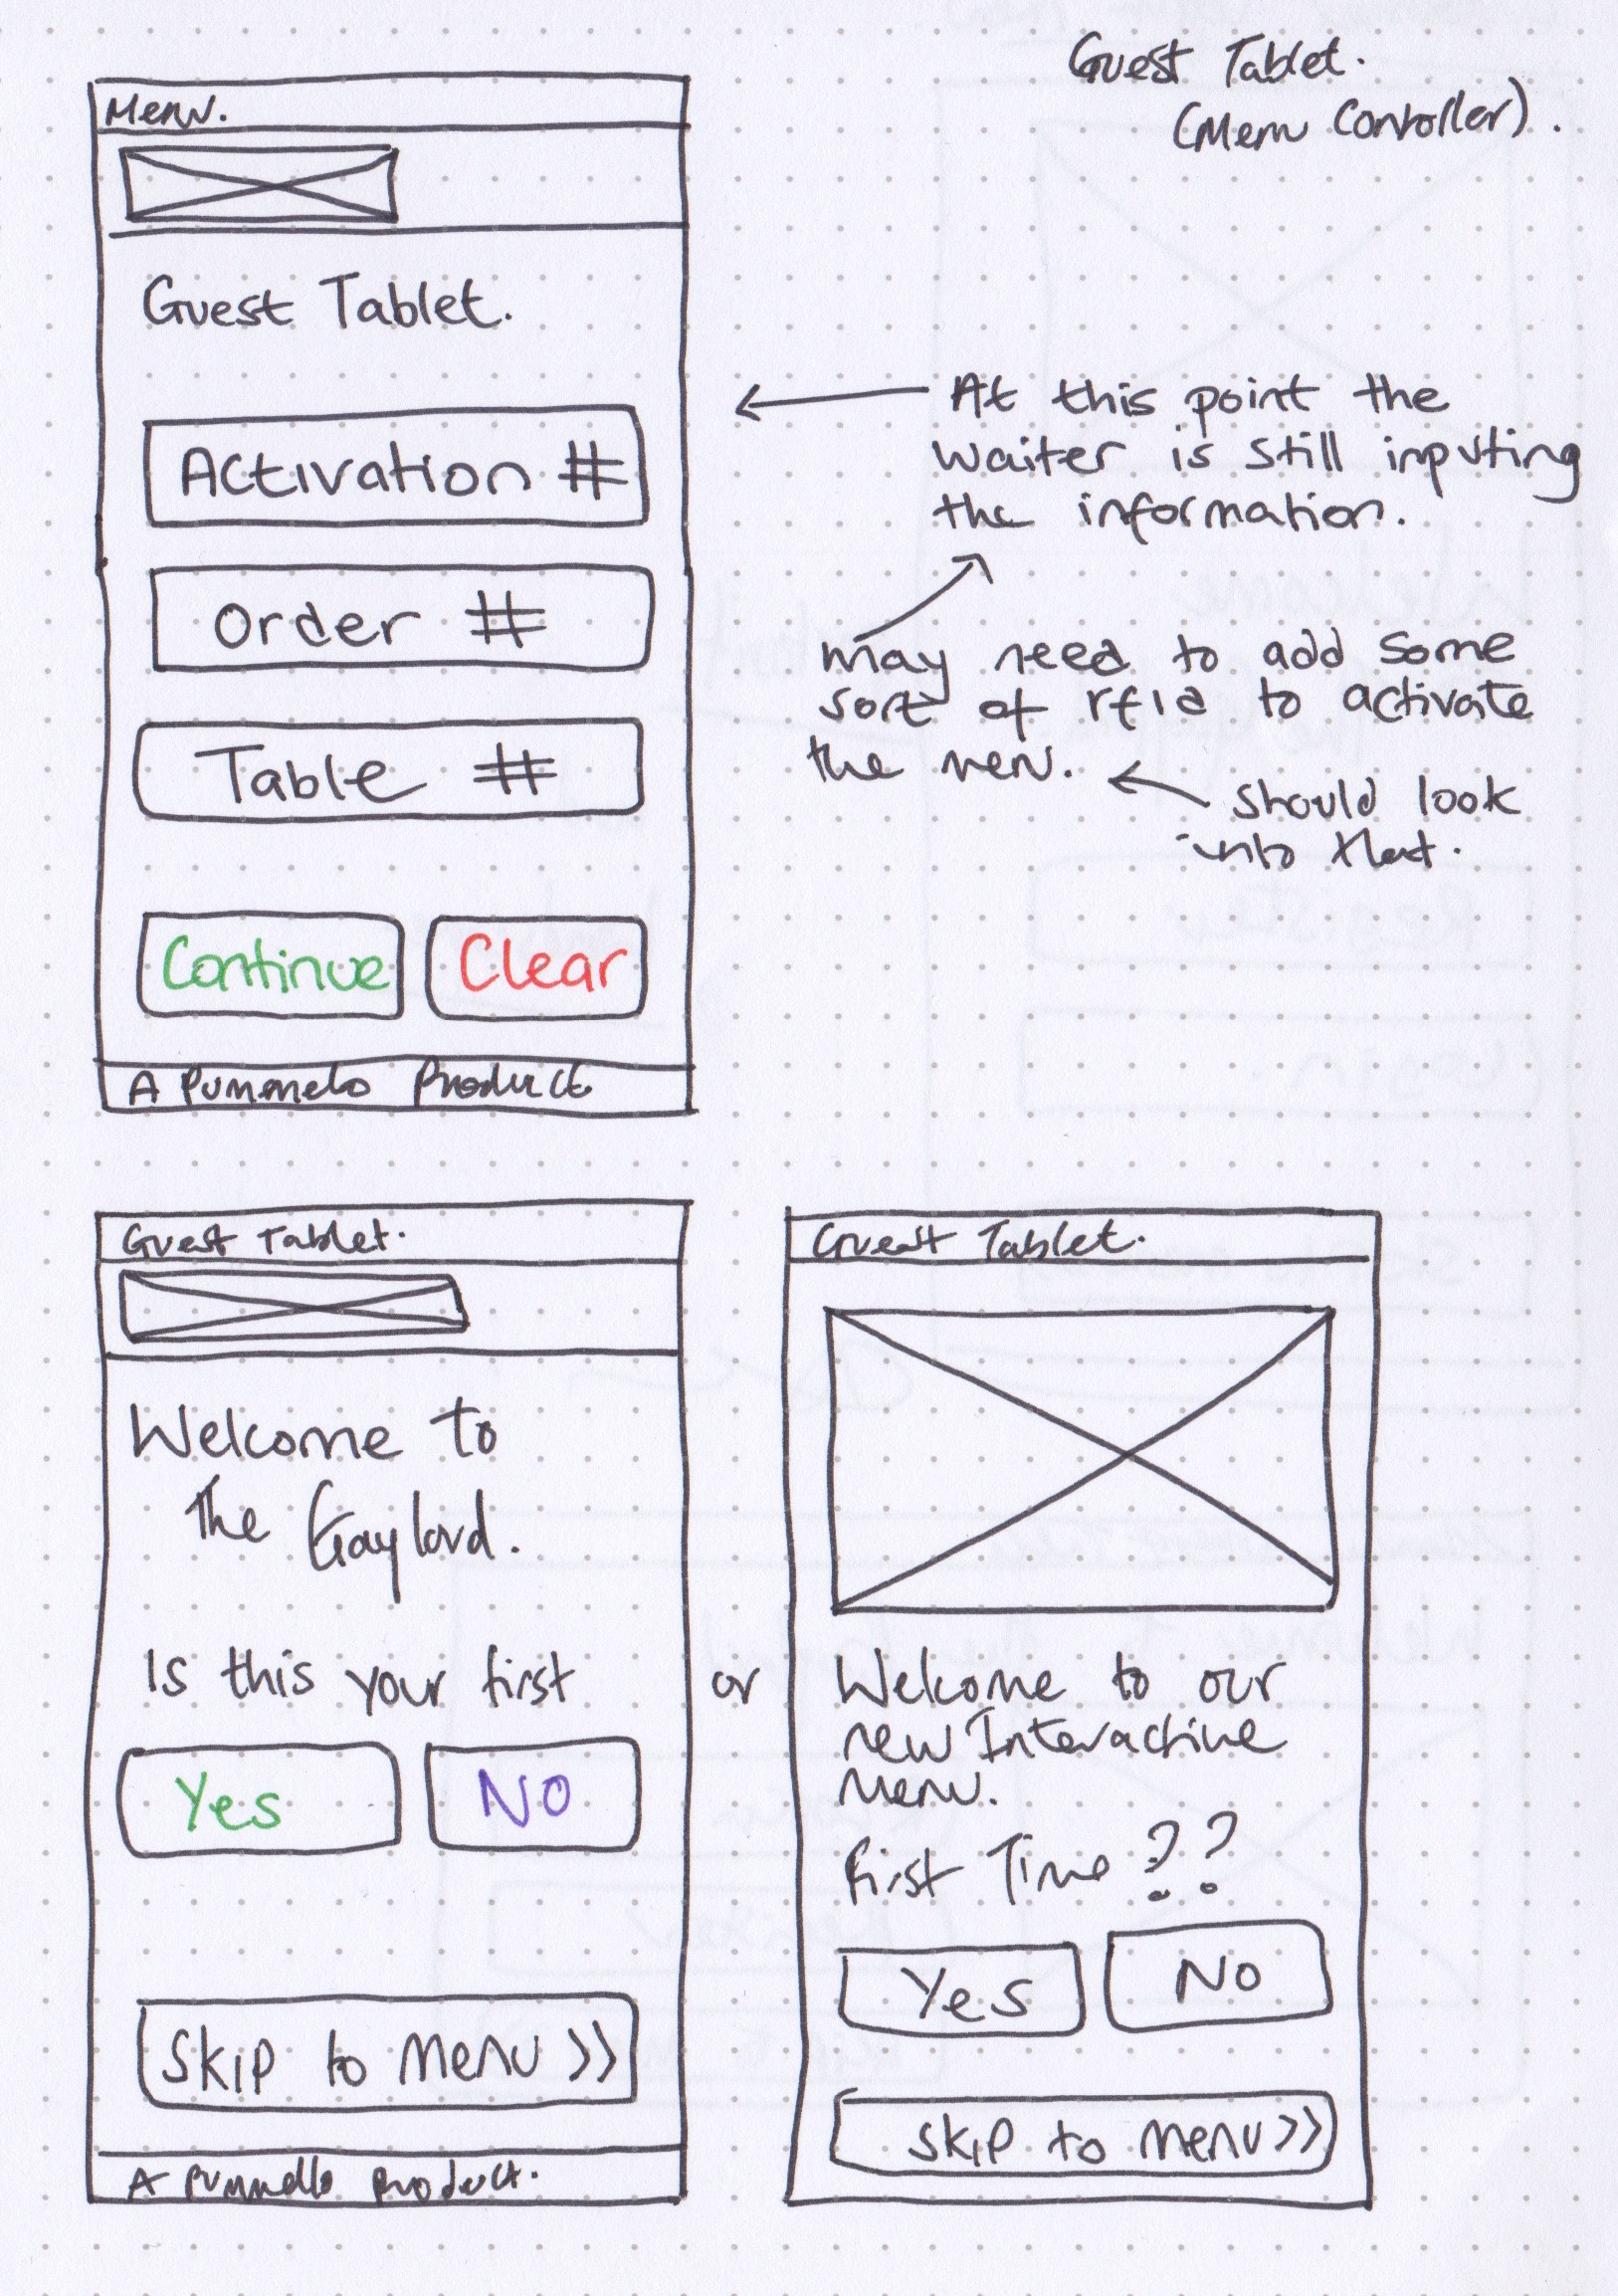 Guest Tablet.
(Menu Controller).
Menu.
Guest Tablet.
Activation #
Order #
Table #
Continue Clear
A Pummelo Product
At this point the
waiter is still inputing
the information.
may need to add some
sort of rfid to activate
the menu.
should look
into that.
Guest Tablet.
Welcome to
The Gaylord.
Is this your first
Yes NO
Skip to menu >>
A Pummello Product.
or
Guest Tablet.
Welcome to our
new Interactive
Menu.
First Time ??
Yes No
Skip to menu >>